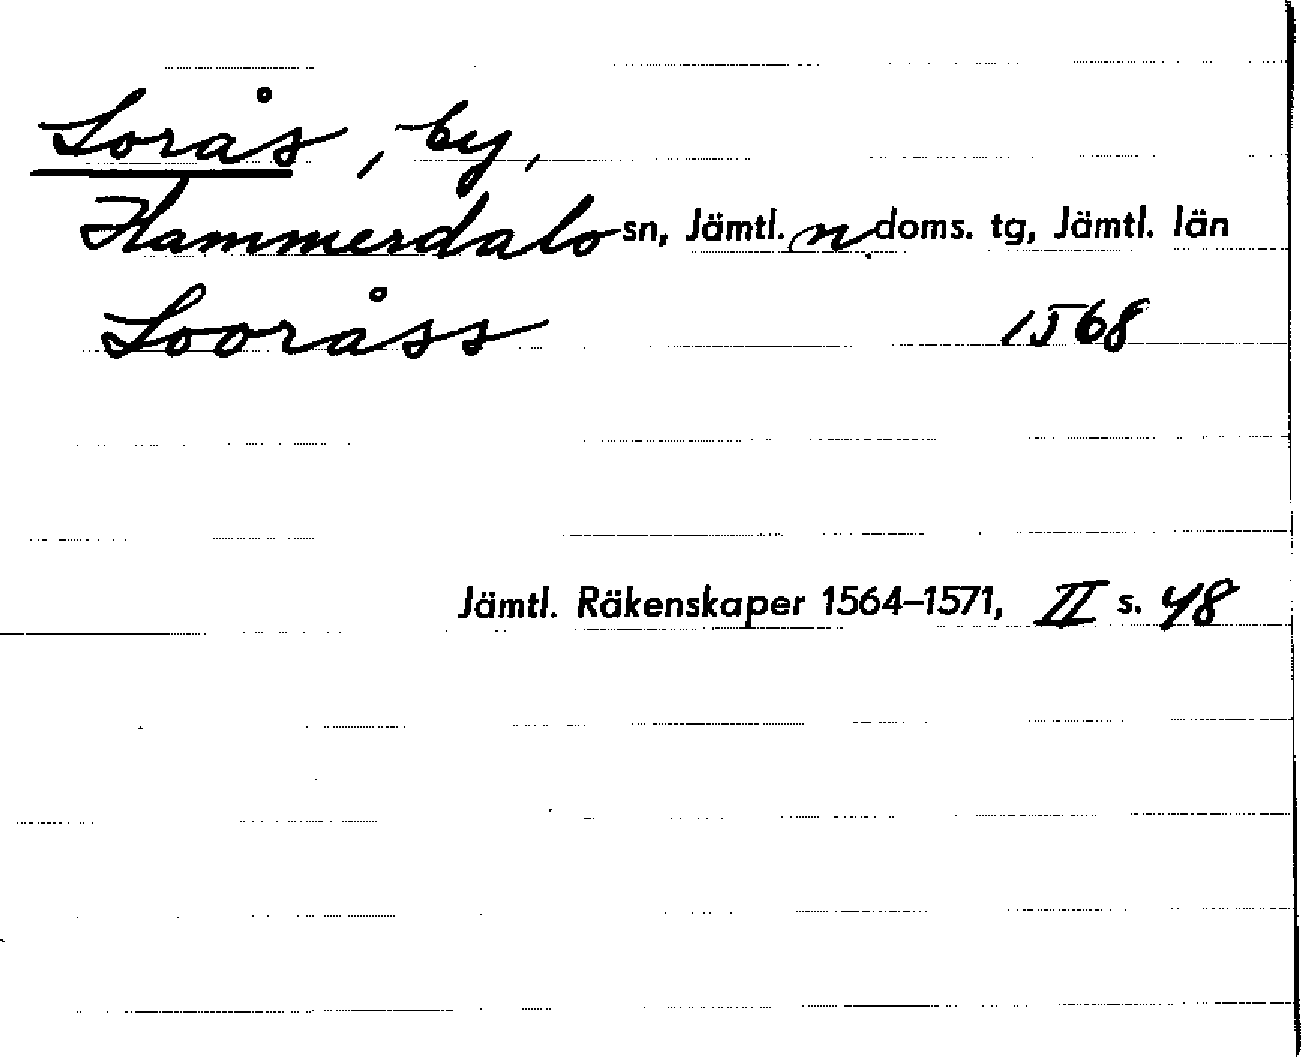 Lorås, by,
Hammerdals sn, Jämtl. n doms. tg, Jämtl. län
Looråss 1568
Jämtl. Räkenskaper 1564–1571, II s. 48